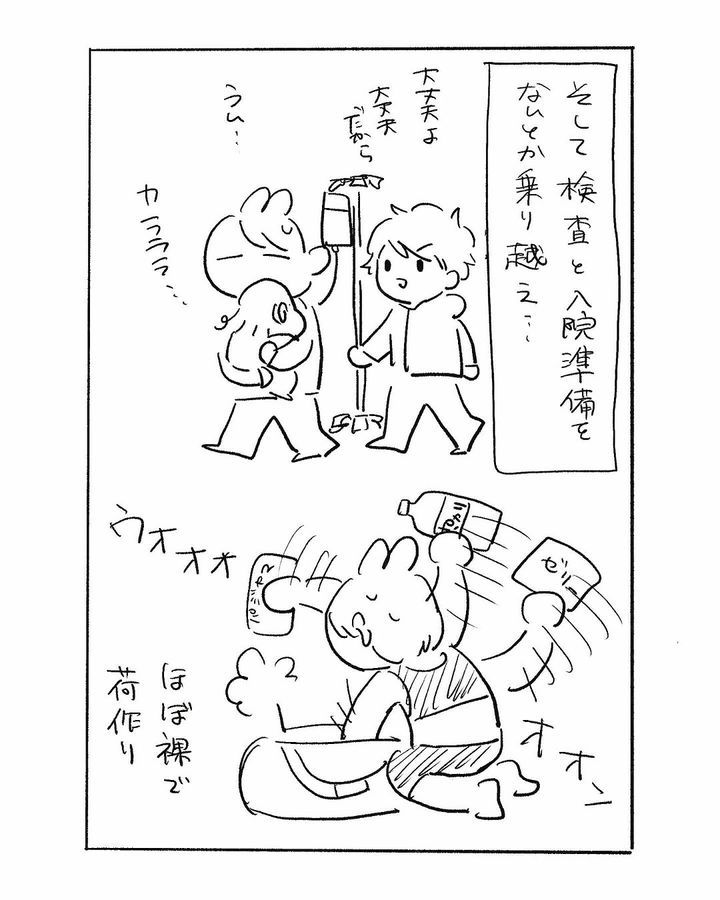 そして検査と入院準備を
なんとか乗り越え…
大丈夫よ
大丈夫
だから
うぅ…
カラララ…
ゼリー
ウオオオ
オオン
ほぼ裸で
荷作り